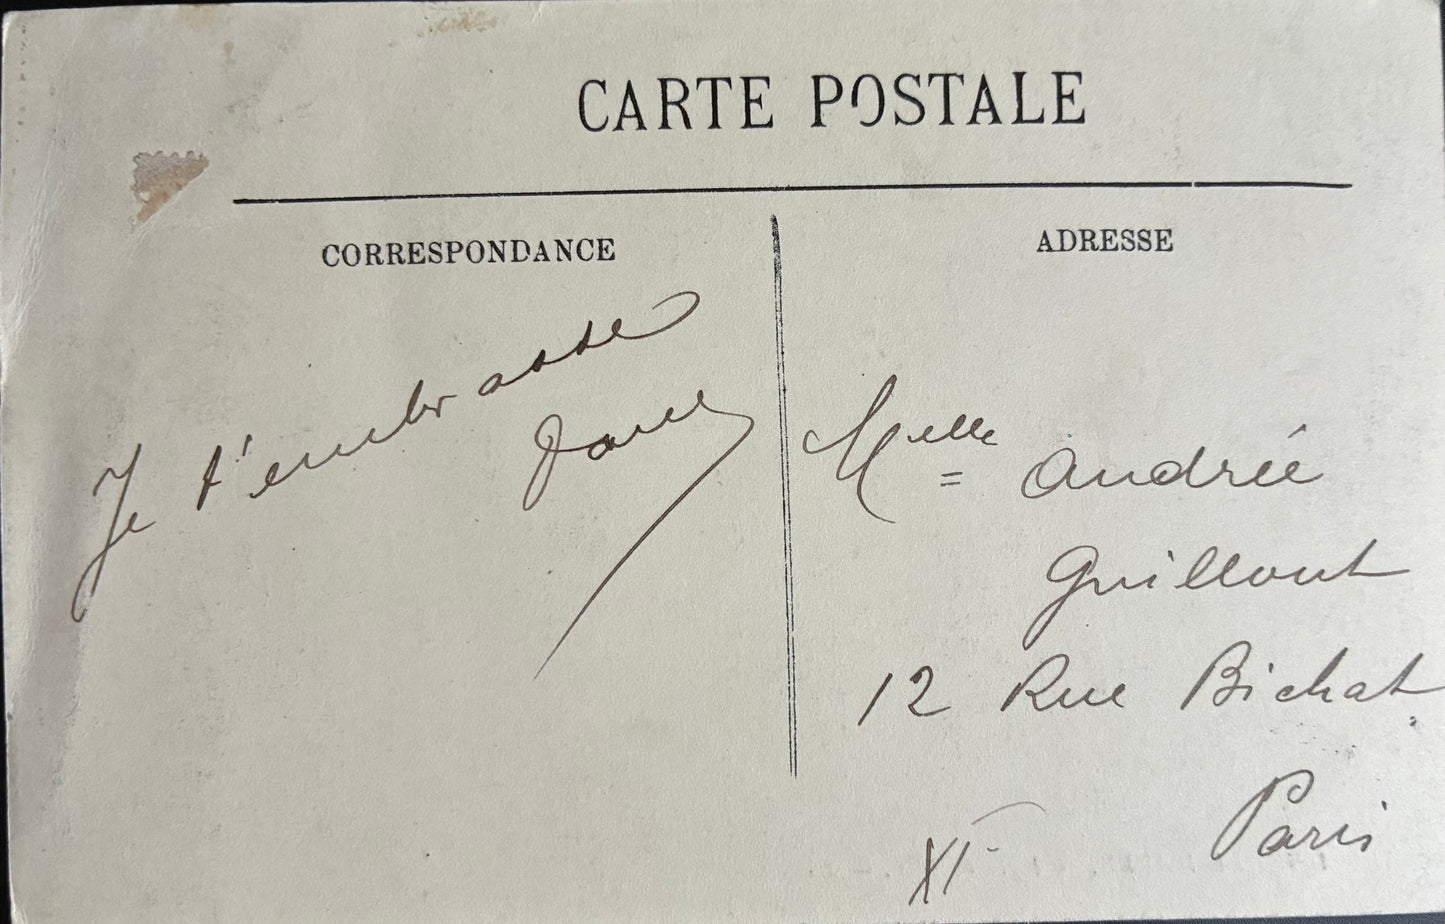 CARTE POSTALE
CORRESPONDANCE
Je t'embrasse
ADRESSE
Melle Andrée
Guillout
12 Rue Bichat
Paris
XI